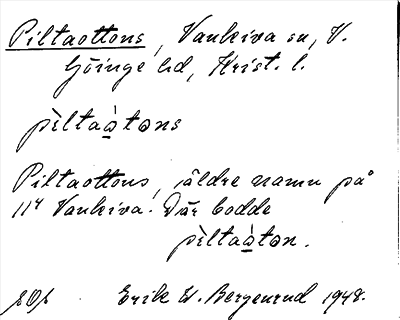 Piltaottons, Vankiva sn, V.
Göinge hd, Krist. l.
pìltaòtəns
Piltaottons, äldre namn på
11⁴ Vankiva. Där bodde
pìltaòtən.
Erik W. Bergenrud 1948.